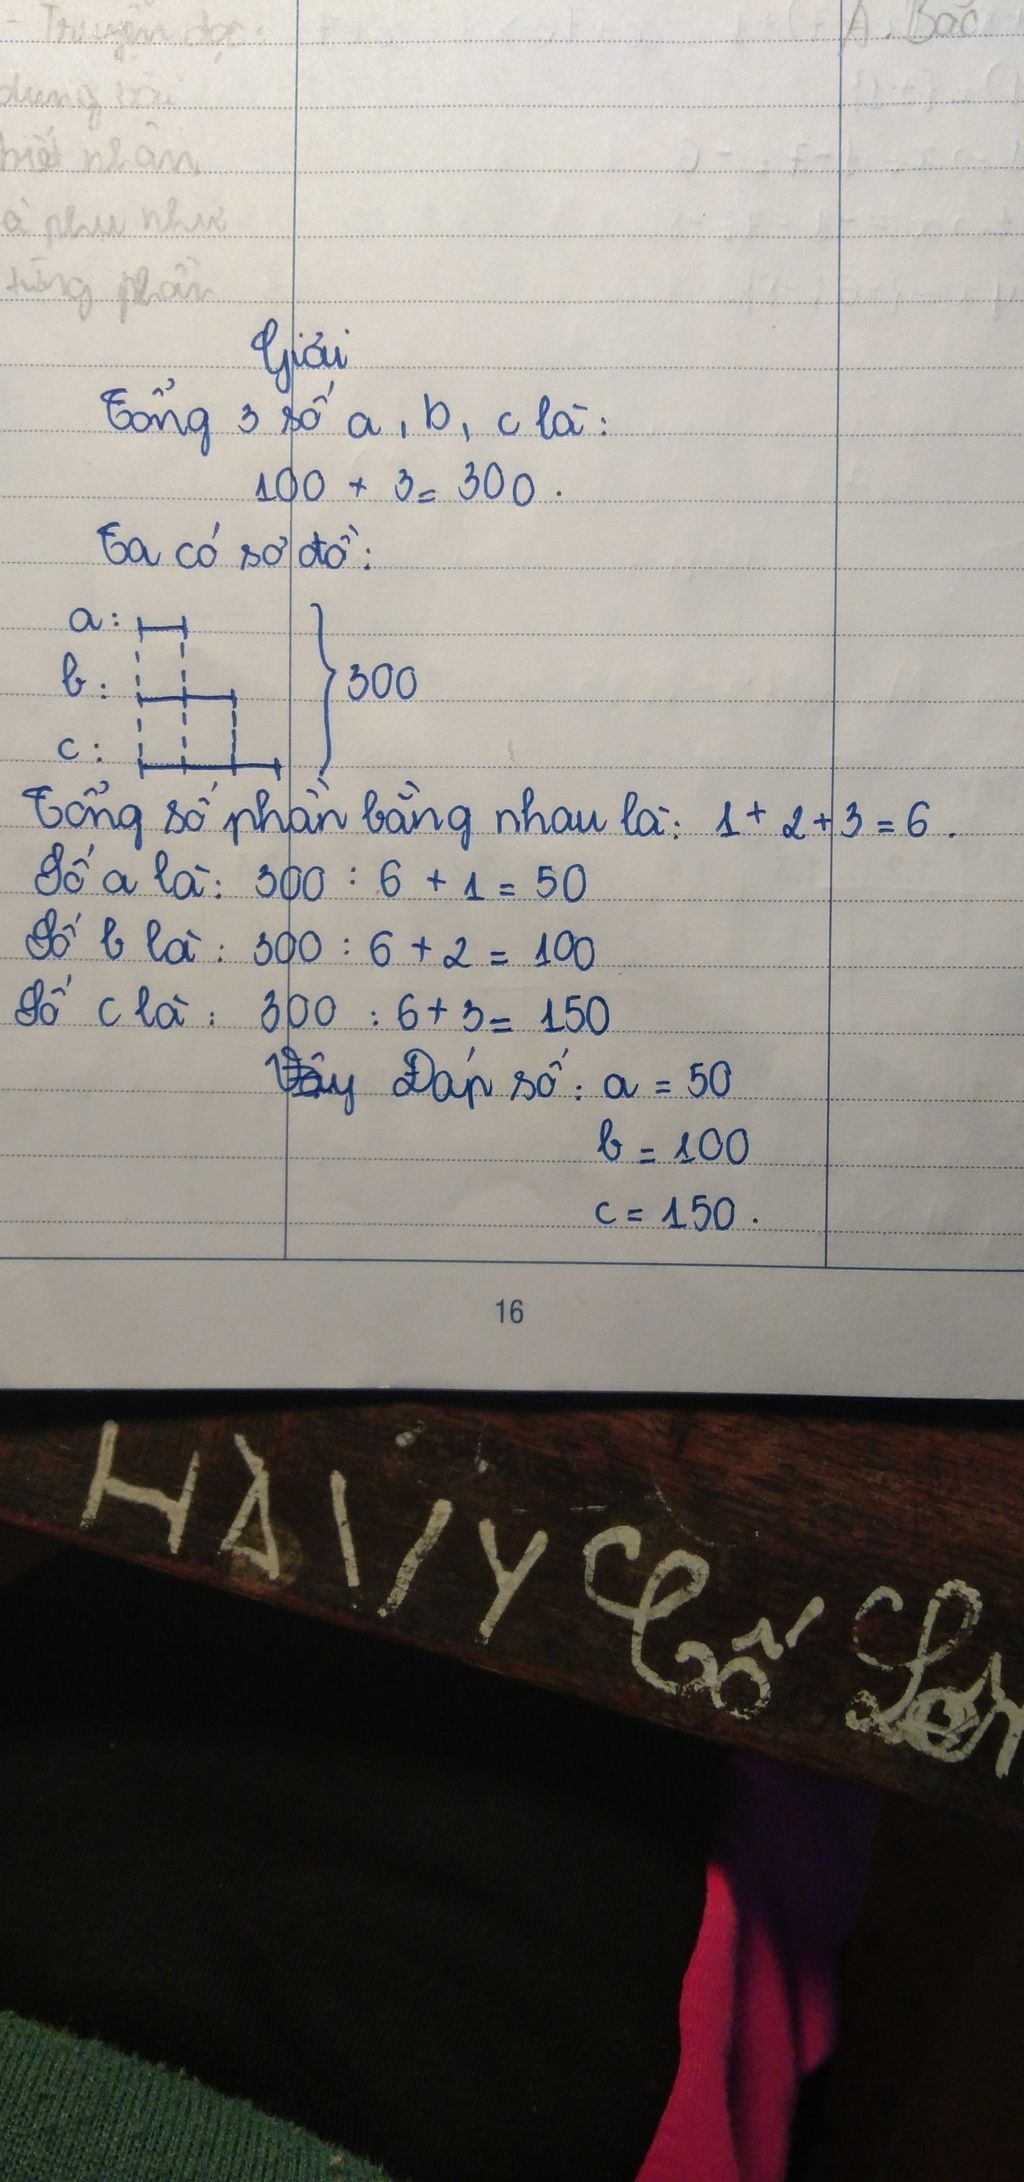 - Truyện đọc:
A. Bảo
dung bài
biết nhân
à phu như
từng phần
Giải
Tổng 3 số a, b, c là:
100 + 3 = 300.
Ta có sơ đồ:
a:
b:
300
c:
Tổng số phần bằng nhau là: 1 + 2 + 3 = 6.
Số a là: 300 : 6 + 1 = 50
Số b là: 300 : 6 + 2 = 100
Số c là: 300 : 6 + 3 = 150
Vậy Đáp số: a = 50
b = 100
c = 150.
16
HÃY Cố Lên